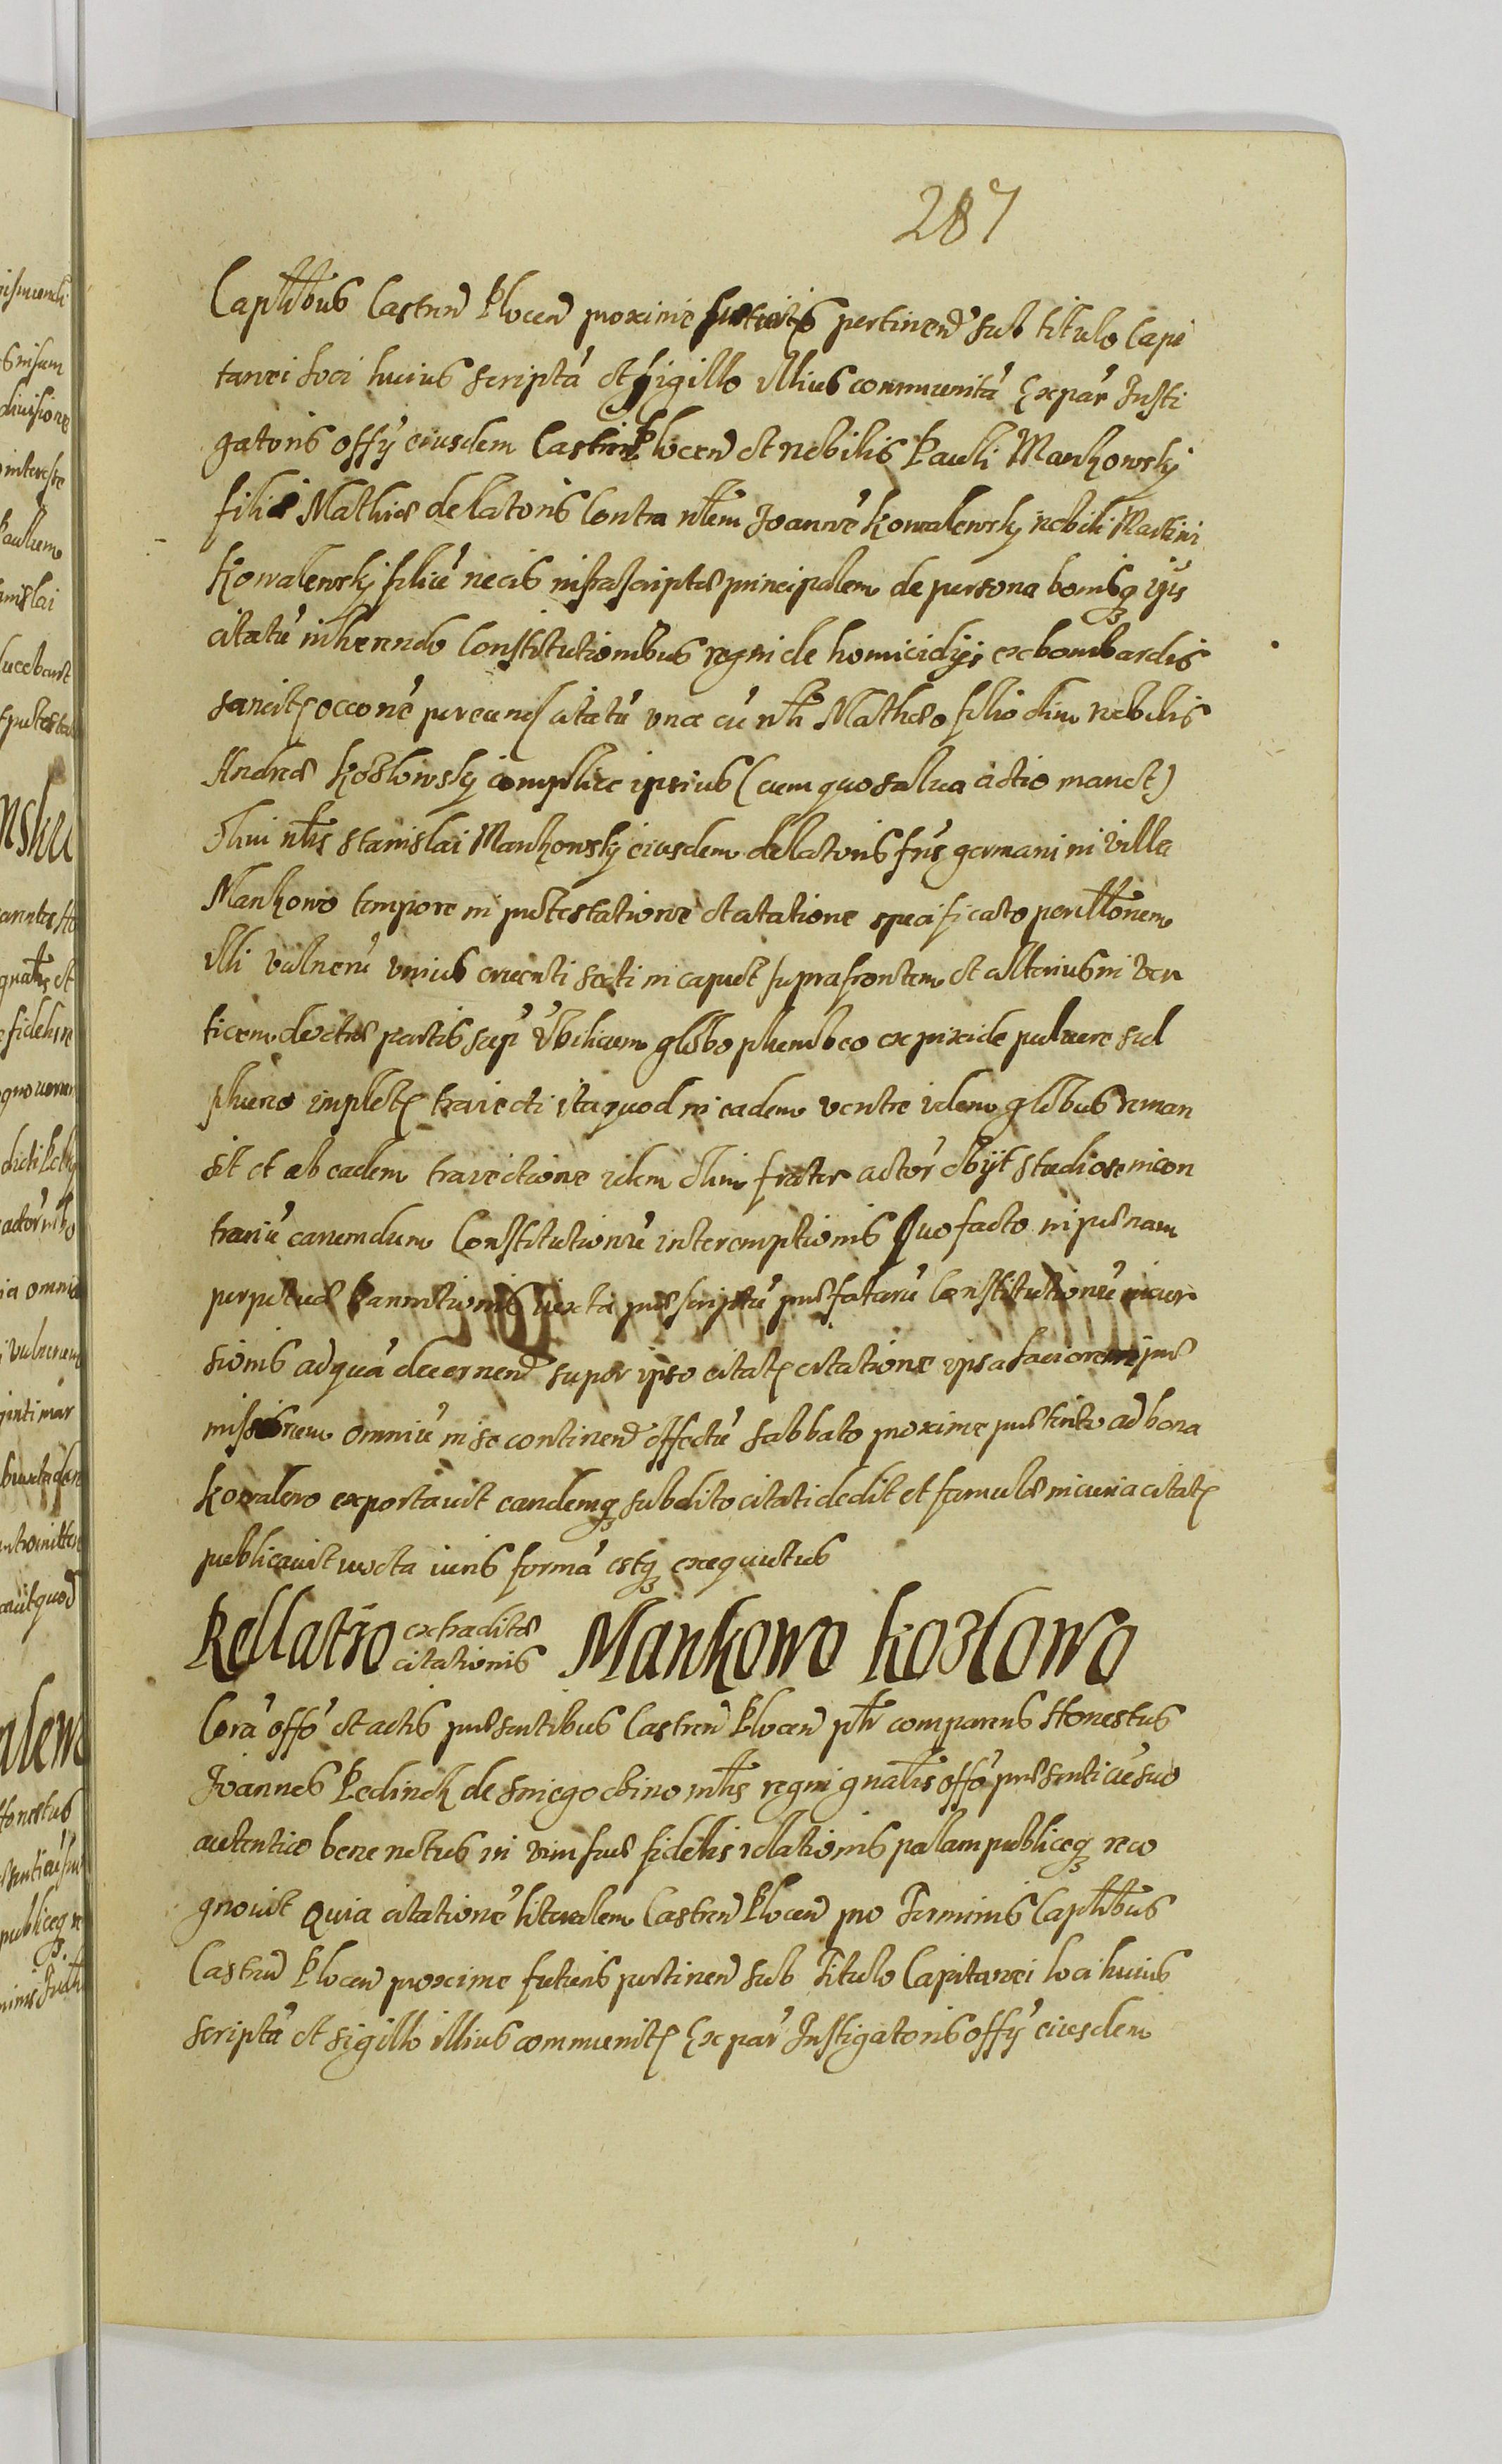 287
Captlibus Castren Plocen proxime futuris pertinen sub titulo Capi
tanei loci huius scriptá et sigillo illius communitá Ex pár Insti
gatoris offÿ eiusdem Castren Plocen et nobilis Pauli Mankowskÿ
filii Mathiæ delatoris Contra nblem Joannē Kowalewskÿ nobili Martini
Kowalewskÿ filiū necis infrascriptæ principalem de persona bonisq eius
citatū inhærendo Constitutionibus regni de homicidijs ex bombardis
sancit occonē citatū una cū nbli Mathæo filio olim nobilis
Andreæ Kozlowskÿ complice ipsius (cum quo salua actio manet)
olim nblis Stanislai Mankowskÿ eiusdem delatoris frīs germani in villa
Mankowo tempore in protestatione et citatione specificato per illōnem
illi vulnerū unius cruenti secti in caput supra frontem et alterius in ven
ticem dextræ partis sup ūbilicum globo plumbeo ex pixide puluere sul
phureo implet traiecti ita quod in eadem ventre idem globus reman
sit et ab eadem traiectione idem olim frater actor obijt studiose in con
trariū earumdum Constitutionū interemptionis Quo facto in pœnam
perpetuæ bannitionis iuxta præscriptū præfatarū Constitutionū incur
sionis ad quā decernen super ipso citat citatione ipsa laciorem præ
missorum omniū in se continen effectū sabbato proxime præterito ad bona
Kowalewo exportauit eandemq subdito citati dedit et famulæ in curia citat
publicauit iuxta iuris formā estq exequutus
Rellatio extraditæ citationis Mankowo Kozlowo
Corā offō et actis præsentibus Castren Plocen pltr comparens Honestus
Joannes Pedinck de Sniegochino mtlis regni gnālis offō præsenti cūe suo
autentice bene notus in vim suæ fidelis rellationis palam publiceq reco
gnouit Quia citationē literalem Castren Plocen pro Terminis Captlibus
Castren Plocen proxime futuris pertinen sub Titulo Capitanei loci huius
scriptā et sigillo illius communit Ex pár Instigatoris offÿ eiusdem